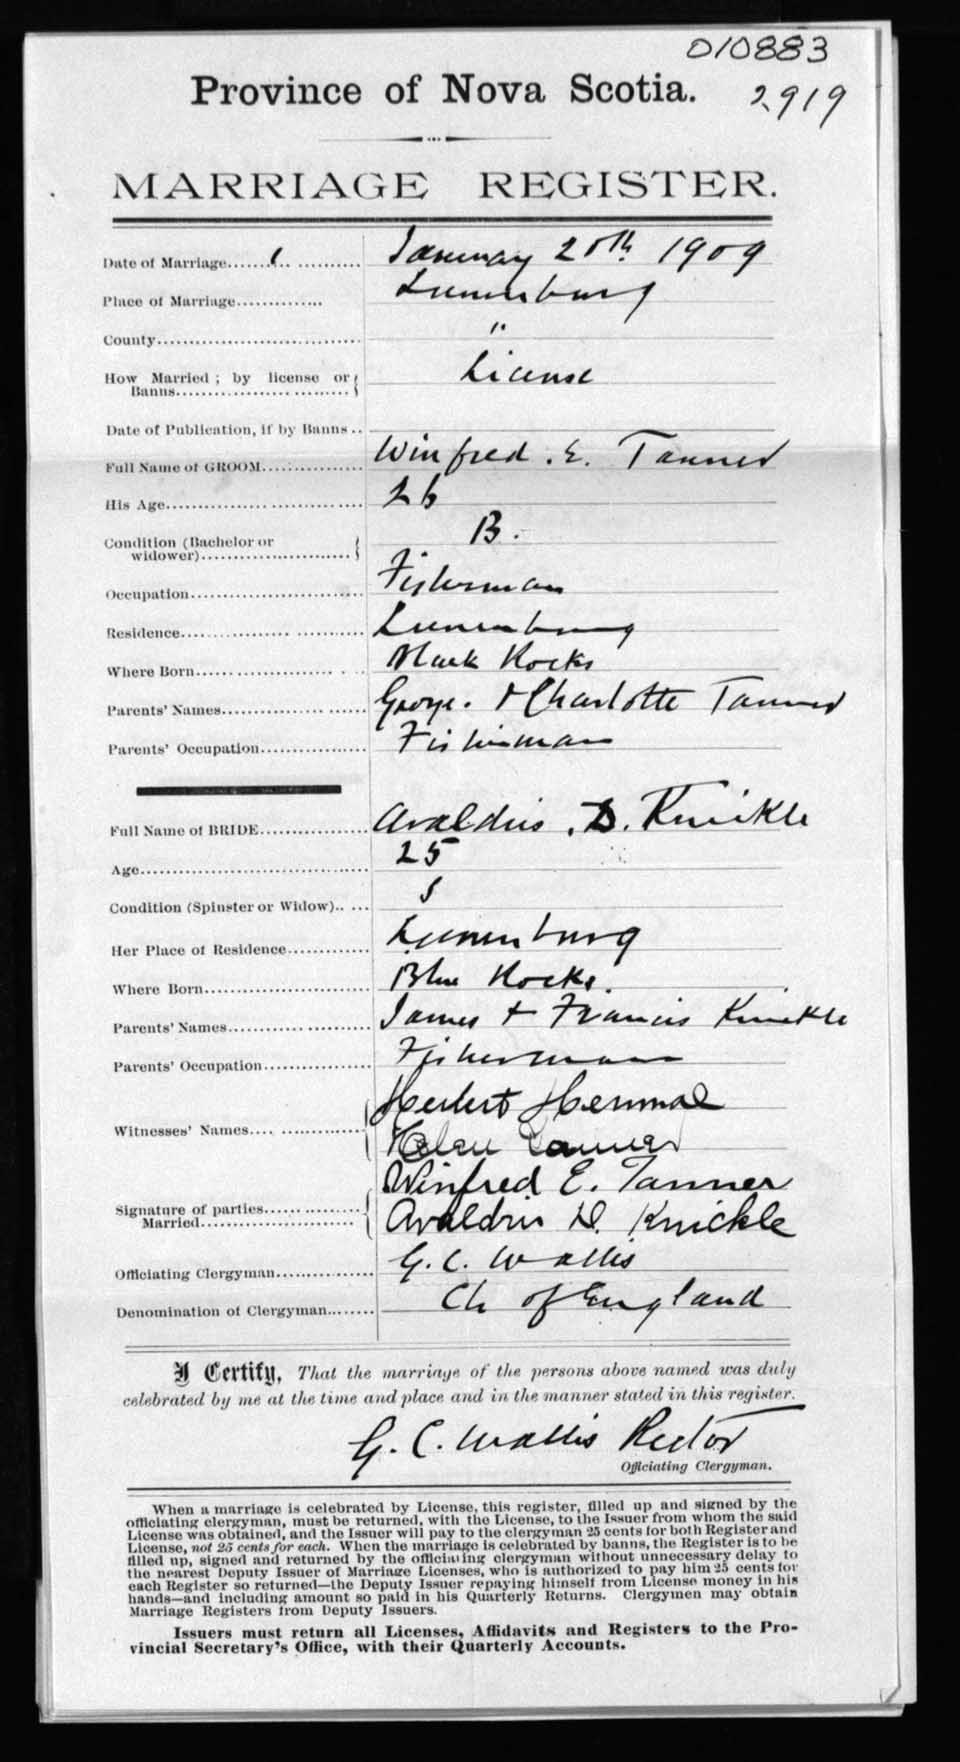 010883
Province of Nova Scotia. 2919
MARRIAGE REGISTER.
Date of Marriage January 20th 1909
Place of Marriage Lunenburg
County "
How Married ; by license or
Banns License
Date of Publication, if by Banns
Full Name of GROOM Winfred . E. Tanner
His Age 26
Condition (Bachelor or
widower) B.
Occupation Fisherman
Residence Lunenburg
Where Born Rocks
Parents' Names George. & Charlotte Tanner
Parents' Occupation Fisherman
Full Name of BRIDE Avaldris . D. Knickle
Age 25
Condition (Spinster or Widow) S
Her Place of Residence Lunenburg
Where Born Blue Rocks.
Parents' Names James + Francis Knickle
Parents' Occupation Fisherman
Witnesses' Names Herbert
Helen Tanner
Signature of parties
Married Winfred E. Tanner
Avaldris D. Knickle
Officiating Clergyman G. C. Wallis
Denomination of Clergyman Ch of England
I Certify, That the marriage of the persons above named was duly
celebrated by me at the time and place and in the manner stated in this register.
G. C. Wallis Rector
Officiating Clergyman.
When a marriage is celebrated by License, this register, filled up and signed by the
officiating clergyman, must be returned, with the License, to the Issuer from whom the said
License was obtained, and the Issuer will pay to the clergyman 25 cents for both Register and
License, not 25 cents for each. When the marriage is celebrated by banns, the Register is to be
filled up, signed and returned by the officiating clergyman without unnecessary delay to
the nearest Deputy Issuer of Marriage Licenses, who is authorized to pay him 25 cents for
each Register so returned—the Deputy Issuer repaying himself from License money in his
hands—and including amount so paid in his Quarterly Returns. Clergymen may obtain
Marriage Registers from Deputy Issuers.
Issuers must return all Licenses, Affidavits and Registers to the Pro-
vincial Secretary's Office, with their Quarterly Accounts.